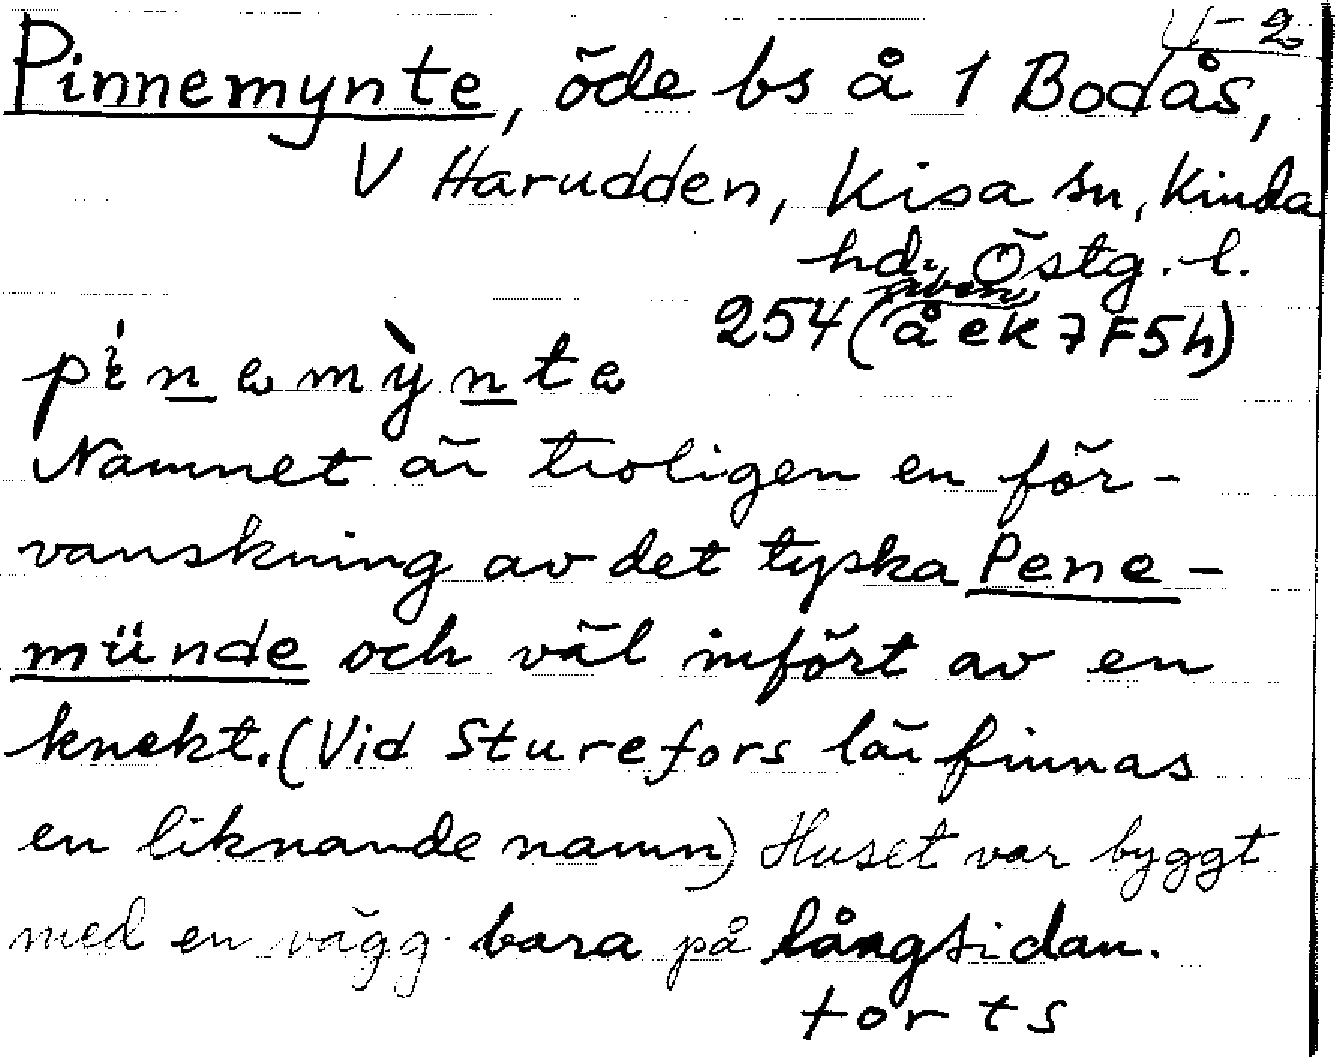 U-2
Pinnemynte, öde bs å 1 Bodås,
V Harudden, Kisa sn, Kinda
hd. Östg. l.
även
254 (å ek 7F5h)
pinemỳnte
Namnet är troligen en för-
vanskning av det tyska Pene-
münde och väl infört av en
knekt. (Vid Sturefors lär finnas
en liknande namn) Huset var byggt
med en vägg bara på långsidan.
forts